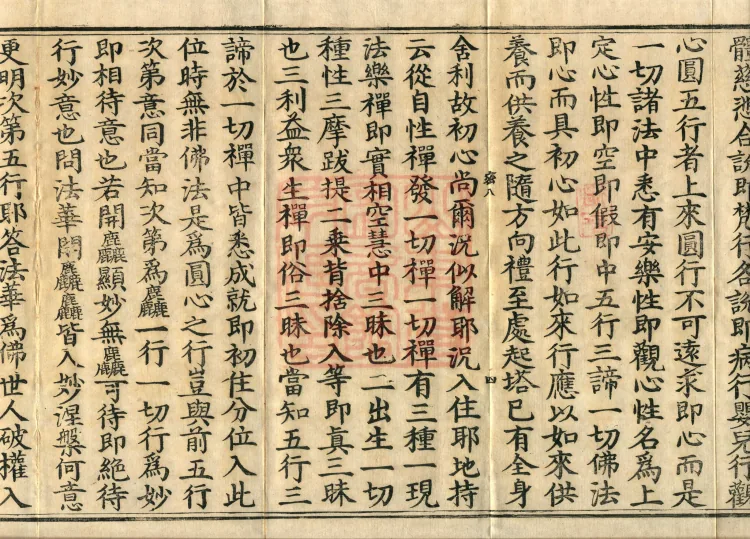 體慈悲合說即梵行各說即病行嬰兒行觀
心圓五行者上來圓行不可遠求即心而是
一切諸法中悉有安樂性即觀心性名爲上
定心性即空即假即中五行三諦一切佛法
即心而具初心如此行如來行應以如來供
養而供養之隨方向禮至處起塔已有全身
舍利故初心尚爾況似解耶況入住耶地持
云從自性禪發一切禪一切禪有三種一現
法樂禪即實相空慧中三昧也二出生一切
種性三摩跋提二乗背捨除入等即眞三昧
也三利益衆生禪即俗三昧也當知五行三
諦於一切禪中皆悉成就即初住分位入此
位時無非佛法是爲圓心之行豈與前五行
次第意同當知次第爲麤一行一切行爲妙
即相待意也若開麤顯妙無麤可待即絶待
行妙意也問法華開麤麤皆入妙涅槃何意
更明次第五行耶答法華爲佛世人破權入